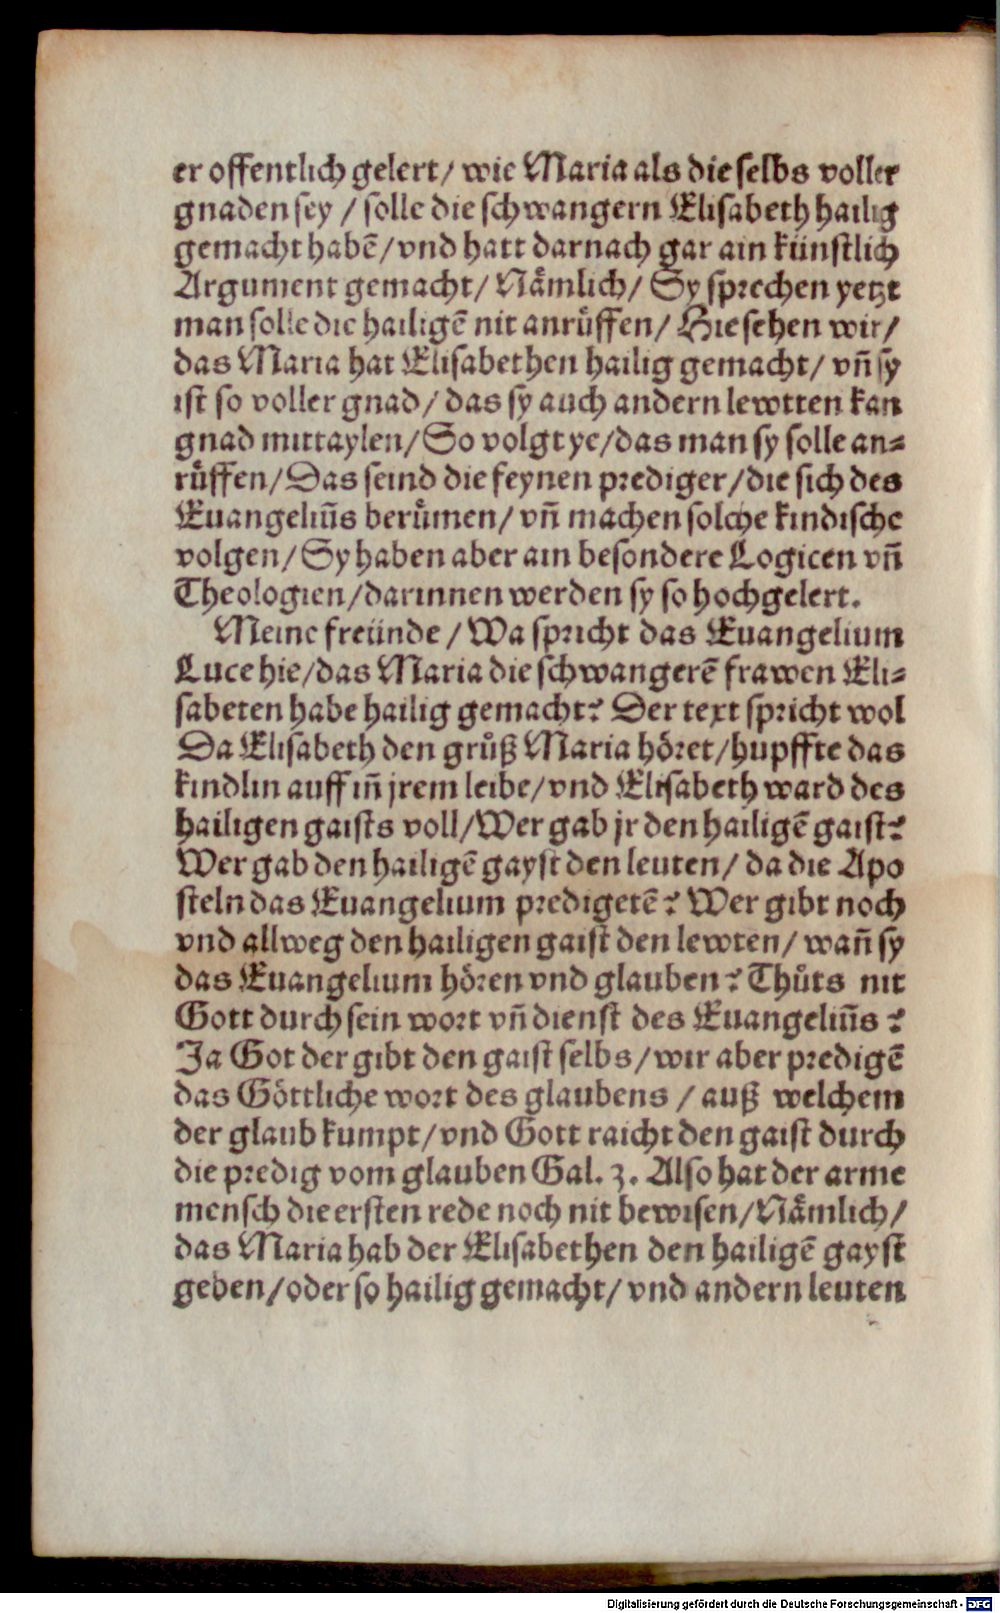 er offentlich gelert/ wie Maria als die selbs voller
gnaden sey / solle die schwangern Elisabeth hailig
gemacht habẽ/vnd hatt darnach gar ain künstlich
Argument gemacht/ Nämlich/ Sy sprechen yetzt
man solle die hailigẽ nit anrüffen/ Hie sehen wir/
das Maria hat Elisabethen hailig gemacht/ vñ sy
ist so voller gnad/ das sy auch andern lewtten kan
gnad mittaylen/ So volgt ye/das man sy solle an⸗
rüffen/ Das seind die feynen prediger/die sich des
Euangeliũs berümen/ vñ machen solche kindische
volgen/ Sy haben aber ain besondere Logicen vñ
Theologien/darinnen werden sy so hochgelert.
Meine freünde/ Wa spricht das Euangelium
Luce hie/das Maria die schwangerẽ frawen Eli⸗
sabeten habe hailig gemacht? Der text spricht wol
Da Elisabeth den grůß Maria höret/hupffte das
kindlin auff iñ jrem leibe/vnd Elisabeth ward des
hailigen gaists voll/Wer gab jr den hailigẽ gaist?
Wer gab den hailigẽ gayst den leuten/ da die Apo
steln das Euangelium predigetẽ? Wer gibt noch
vnd allweg den hailigen gaist den lewten/ wañ sy
das Euangelium hören vnd glauben? Thůts nit
Gott durch sein wort vñ dienst des Euangeliũs?
Ja Got der gibt den gaist selbs/wir aber predigẽ
das Göttliche wort des glaubens / auß welchem
der glaub kumpt/vnd Gott raicht den gaist durch
die predig vom glauben Gal. 3. Also hat der arme
mensch die ersten rede noch nit bewisen/Nämlich/
das Maria hab der Elisabethen den hailigẽ gayst
geben/oder so hailig gemacht/ vnd andern leuten
Digitalisierung gefördert durch die Deutsche Forschungsgemeinschaft - DFG